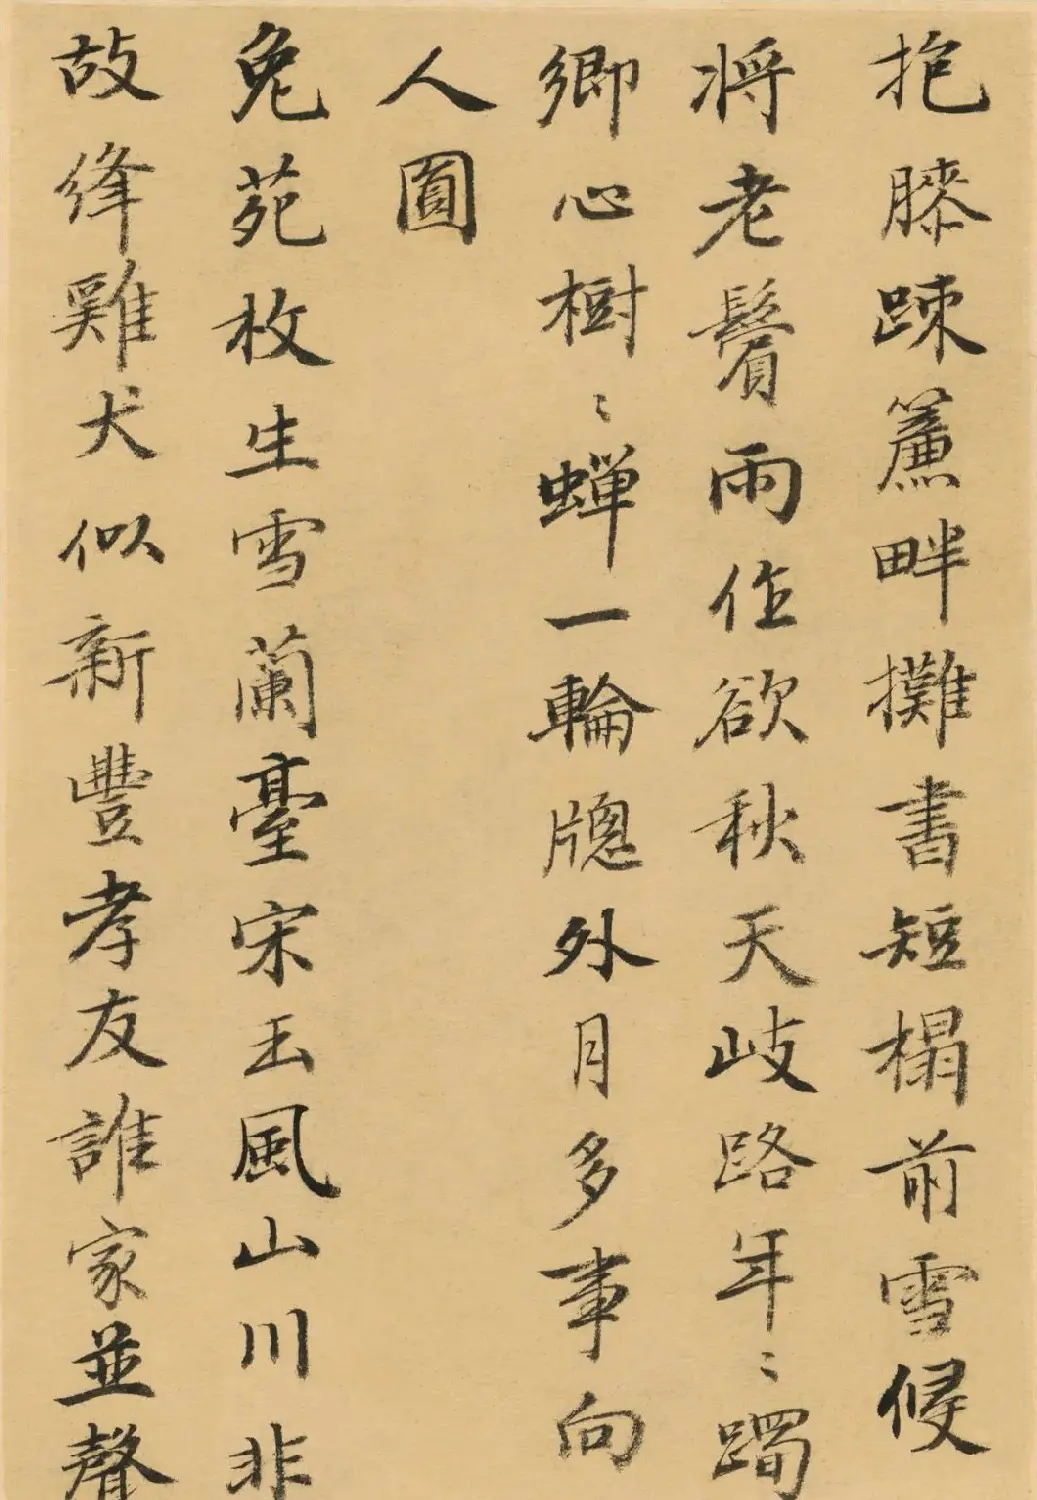 抱膝踈簾畔攤書短榻前雪侵
将老鬢雨作欲秋天岐路年〻躅
鄉心樹〻蟬一輪牕外月多事向
人圓
兔苑枚生雪蘭臺宋玉風山川非
故絳雞犬似新豐孝友誰家並聲